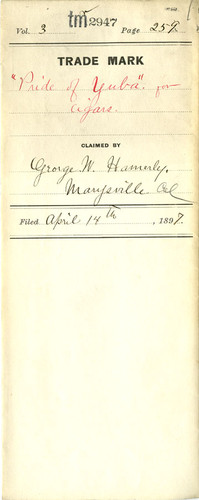 Vol. 3 tm 2947 Page 259
TRADE MARK
"Pride of Yuba" for
Cigars.
CLAIMED BY
George W. Hamerly,
Marysville Cal
Filed April 14th, 1897.